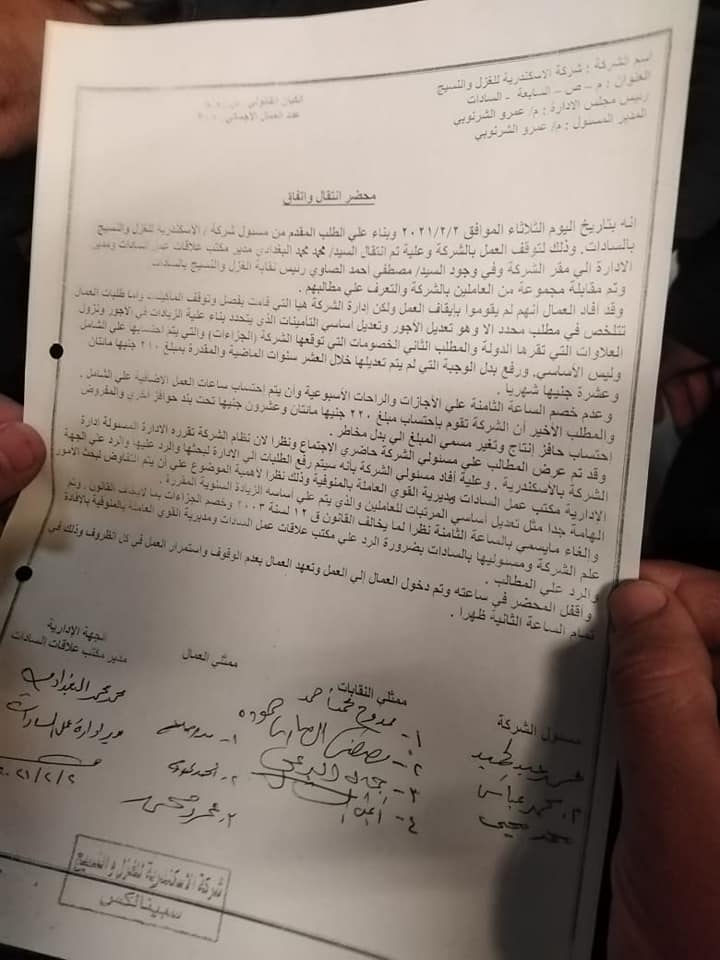 اسم الشركة : شركة الاسكندرية للغزل والنسيج
العنوان : م - ص - السابعة - السادات
رئيس مجلس الادارة : م/ عمرو الشرنوبي
المدير المسئول : م/ عمرو الشرنوبي
الكيان القانوني
عدد العمال الاجمالي
محضر انتقال واتفاق
انه بتاريخ اليوم الثلاثاء الموافق ٢٠٢١/٢/٢ وبناء علي الطلب المقدم من مسئول شركة / الاسكندرية للغزل والنسيج
بالسادات. وذلك لتوقف العمل بالشركة وعلية تم انتقال السيد/ محمد محمد البغدادي مدير مكتب علاقات عمل السادات ومدير
الادارة الي مقر الشركة وفي وجود السيد/ مصطفي احمد الصاوي رئيس نقابة الغزل والنسيج بالسادات.
وتم مقابلة مجموعة من العاملين بالشركة والتعرف علي مطالبهم .
وقد أفاد العمال انهم لم يقوموا بأيقاف العمل ولكن إدارة الشركة هيا التي قامت بفصل وتوقف الماكينات واما طلبات العمال
تتلخص في مطلب محدد الا وهو تعديل الأجور وتعديل اساسي التأمينات الذي يتحدد بناء علية الزيادات في الاجور ونزول
العلاوات التي تقرها الدولة والمطلب الثاني الخصومات التي توقعها الشركة (الجزاءات) والتي يتم احتسابها علي الشامل
وليس الأساسي. ورفع بدل الوجبة التي لم يتم تعديلها خلال العشر سنوات الماضية والمقدرة بمبلغ ٢١٠ جنيها مائتان
وعشرة جنيها شهريا .
وعدم خصم الساعة الثامنة علي الأجازات والراحات الأسبوعية وأن يتم إحتساب ساعات العمل الاضافية علي الشامل .
والمطلب الأخير أن الشركة تقوم بإحتساب مبلغ ٢٢٠ جنيها مائتان وعشرون جنيها تحت بند حوافز اخري والمفروض
احتساب حافز إنتاج وتغير مسمي المبلغ الي بدل مخاطر .
وقد تم عرض المطالب علي مسئولي الشركة حاضري الاجتماع ونظرا لان نظام الشركة تقرره الادارة المسئولة ادارة
الشركة بالأسكندرية . وعلية أفاد مسئولي الشركة بأنه سيتم رفع الطلبات الي الادارة لبحثها والرد عليها والرد علي الجهة
الإدارية مكتب عمل السادات ومديرية القوي العاملة بالمنوفية وذلك نظرا لأهمية الموضوع علي أن يتم التفاوض لبحث الامور
الهامة جدا مثل تعديل اساسي المرتبات للعاملين والذي يتم علي اساسه الزيادة السنوية المقررة .
والغاء مايسمي بالساعة الثامنة نظرا لما يخالف القانون ق ١٢ لسنة ٢٠٠٣ وخصم الجزاءات بما لايخالف القانون . وتم
علم الشركة ومسئوليها بالسادات بضرورة الرد علي مكتب علاقات عمل السادات ومديرية القوي العاملة بالمنوفية بالأفادة
والرد علي المطالب .
وأقفل المحضر في ساعته وتم دخول العمال إلي العمل وتعهد العمال بعدم الوقوف واستمرار العمل في كل الظروف وذلك في
تمام الساعة الثانية ظهرا .
مسئول الشركة
ممثلي النقابات
ممثلي العمال
الجهة الإدارية
مدير مكتب علاقات السادات
٢- محمد عباس
محمد يحيي
١-
٢-
٣-
٤-
١-
٢-
محمد محمد البغدادي
٢٠٢١/٢/٢
شركة الاسكندرية للغزل والنسيج
سبينالكس